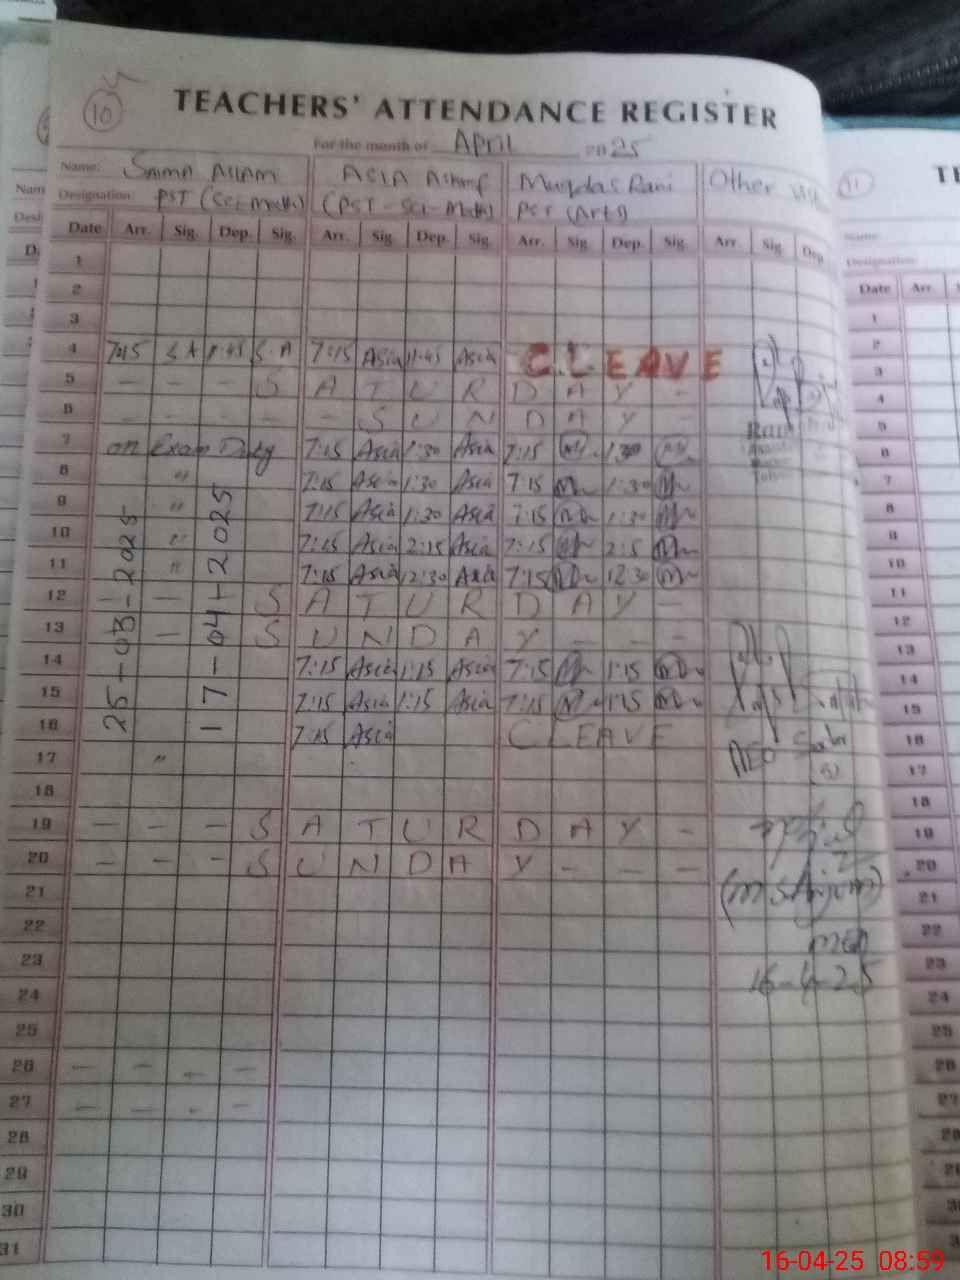 10
TEACHERS' ATTENDANCE REGISTER
For the month of April 2025
Name: SAMA ASLAM ASIA Ashraf Muqdas Rani Other
Designation: PST (Sci-Math) (PST-Sci-Math) PST (Arts)
Date Arr. Sig. Dep. Sig. Arr. Sig. Dep. Sig. Arr. Sig. Dep. Sig. Arr. Sig. Dep.
1
2
3
4 7:45 S.A 11:45 S.A 7:15 Asia 11:45 Asia C.LEAVE
5 - - - S A T U R D A Y -
6 - - - - - S U N D A Y -
7 on Exam Duty 7:15 Asia 1:30 Asia 7:15 1:30
8 " 7:15 Asia 1:30 Asia 7:15 1:30
9 " 7:15 Asia 1:30 Asia 7:15 1:30
10 " 7:15 Asia 2:15 Asia 7:15 2:15
11 " 7:15 Asia 12:30 Asia 7:15 12:30
12 - - S A T U R D A Y -
13 - S U N D A Y - - -
14 7:15 Asia 1:15 Asia 7:15 1:15
15 7:15 Asia 1:15 Asia 7:15 1:15
16 7:15 Asia C LEAVE
17 "
18
19 - - - S A T U R D A Y -
20 - - - S U N D A Y - - -
21
22
23
24
25
26 - - - -
27 - - - -
28
29
30
31
25-03-2025
17-04-2025
AEO
16-4-25
11
TE
Name:
Designation:
Date Arr.
1
2
3
4
5
6
7
8
9
10
11
12
13
14
15
16
17
18
19
20
21
22
23
24
25
26
27
28
16-04-25 08:59